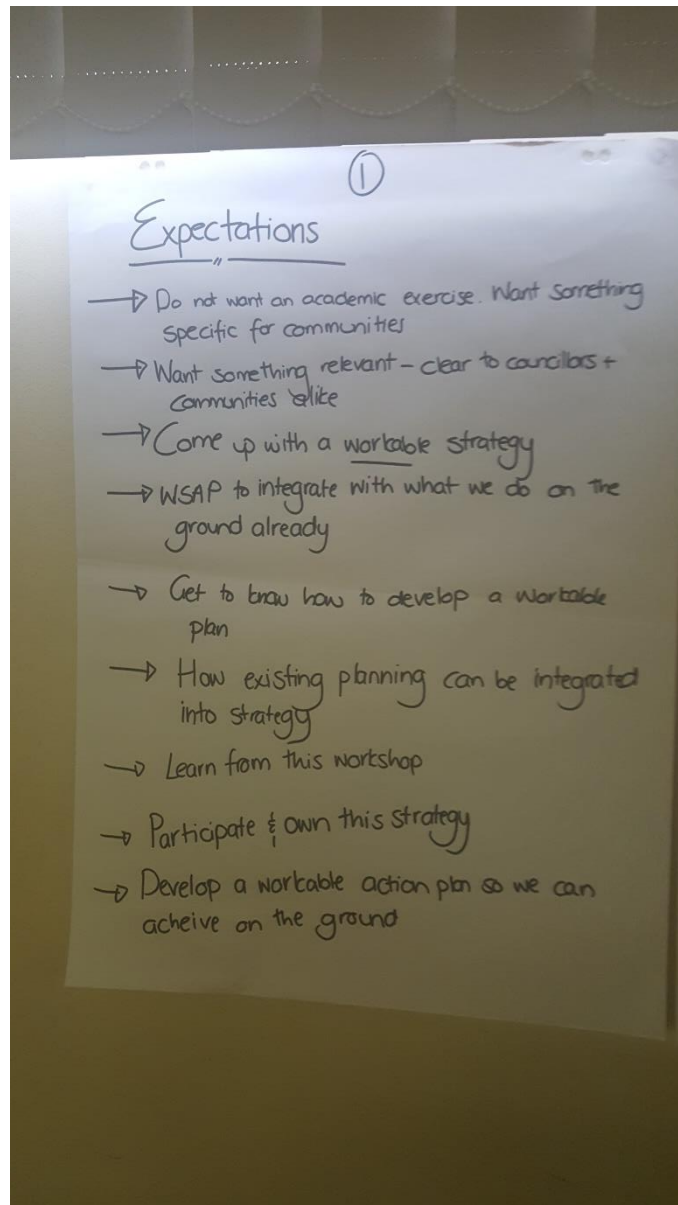 ①
Expectations
→ Do not want an academic exercise. Want something
specific for communities
→ Want something relevant – clear to councillors +
communities alike
→ Come up with a workable strategy
→ WSAP to integrate with what we do on the
ground already
→ Get to know how to develop a workable
plan
→ How existing planning can be integrated
into strategy
→ Learn from this workshop
→ Participate & own this strategy
→ Develop a workable action plan so we can
acheive on the ground